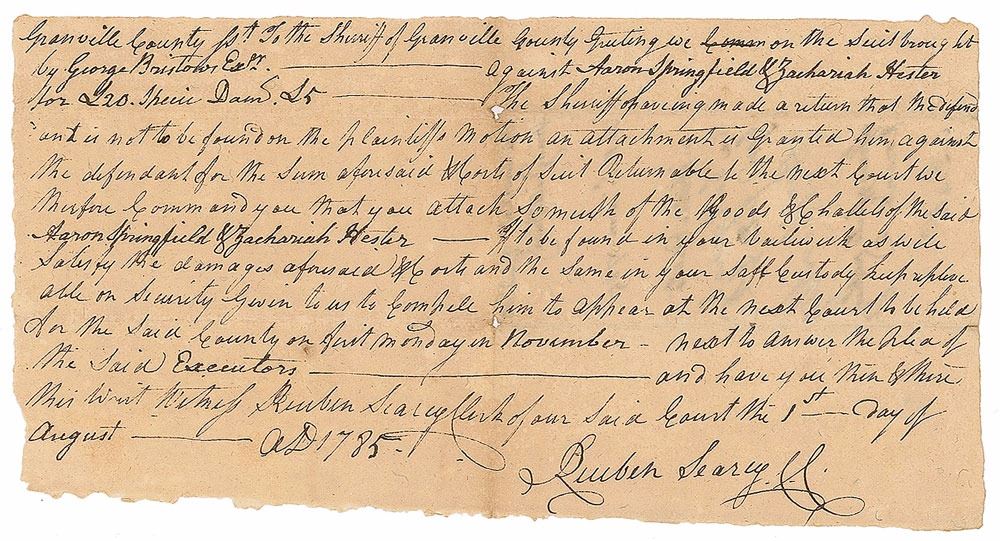 Granville County Sst To the Sheriff of Granville County Greting we Comm on the Suit brought
by George Bristows Exr. against Aaron Springfield & Zachariah Hester
for £20. Specie Dam. £5 The Sheriff haveing made a return that the defend
ant is not to be found on the plaintiffs Motion an attachment is Granted him against
the defendant for the Sum aforesaid & Costs of Suit Returnable to the next Court we
therfore Command you that you attach So much of the Goods & Chattels of the Said
Aaron Springfield & Zachariah Hester If to be found in your bailiwick as will
Satisfy the damages aforesaid & Costs and the Same in your Saff Custody keep replivi
able on Security Given to us to Compele him to appear at the next Court to be held
for the Said County on first monday in November - next to answer the plea of
the Said Executors and have you then & there
this writ Witness Reuben Searcy Clerk of our Said Court the 1st day of
August AD 1785.
Reuben Searcy CC.